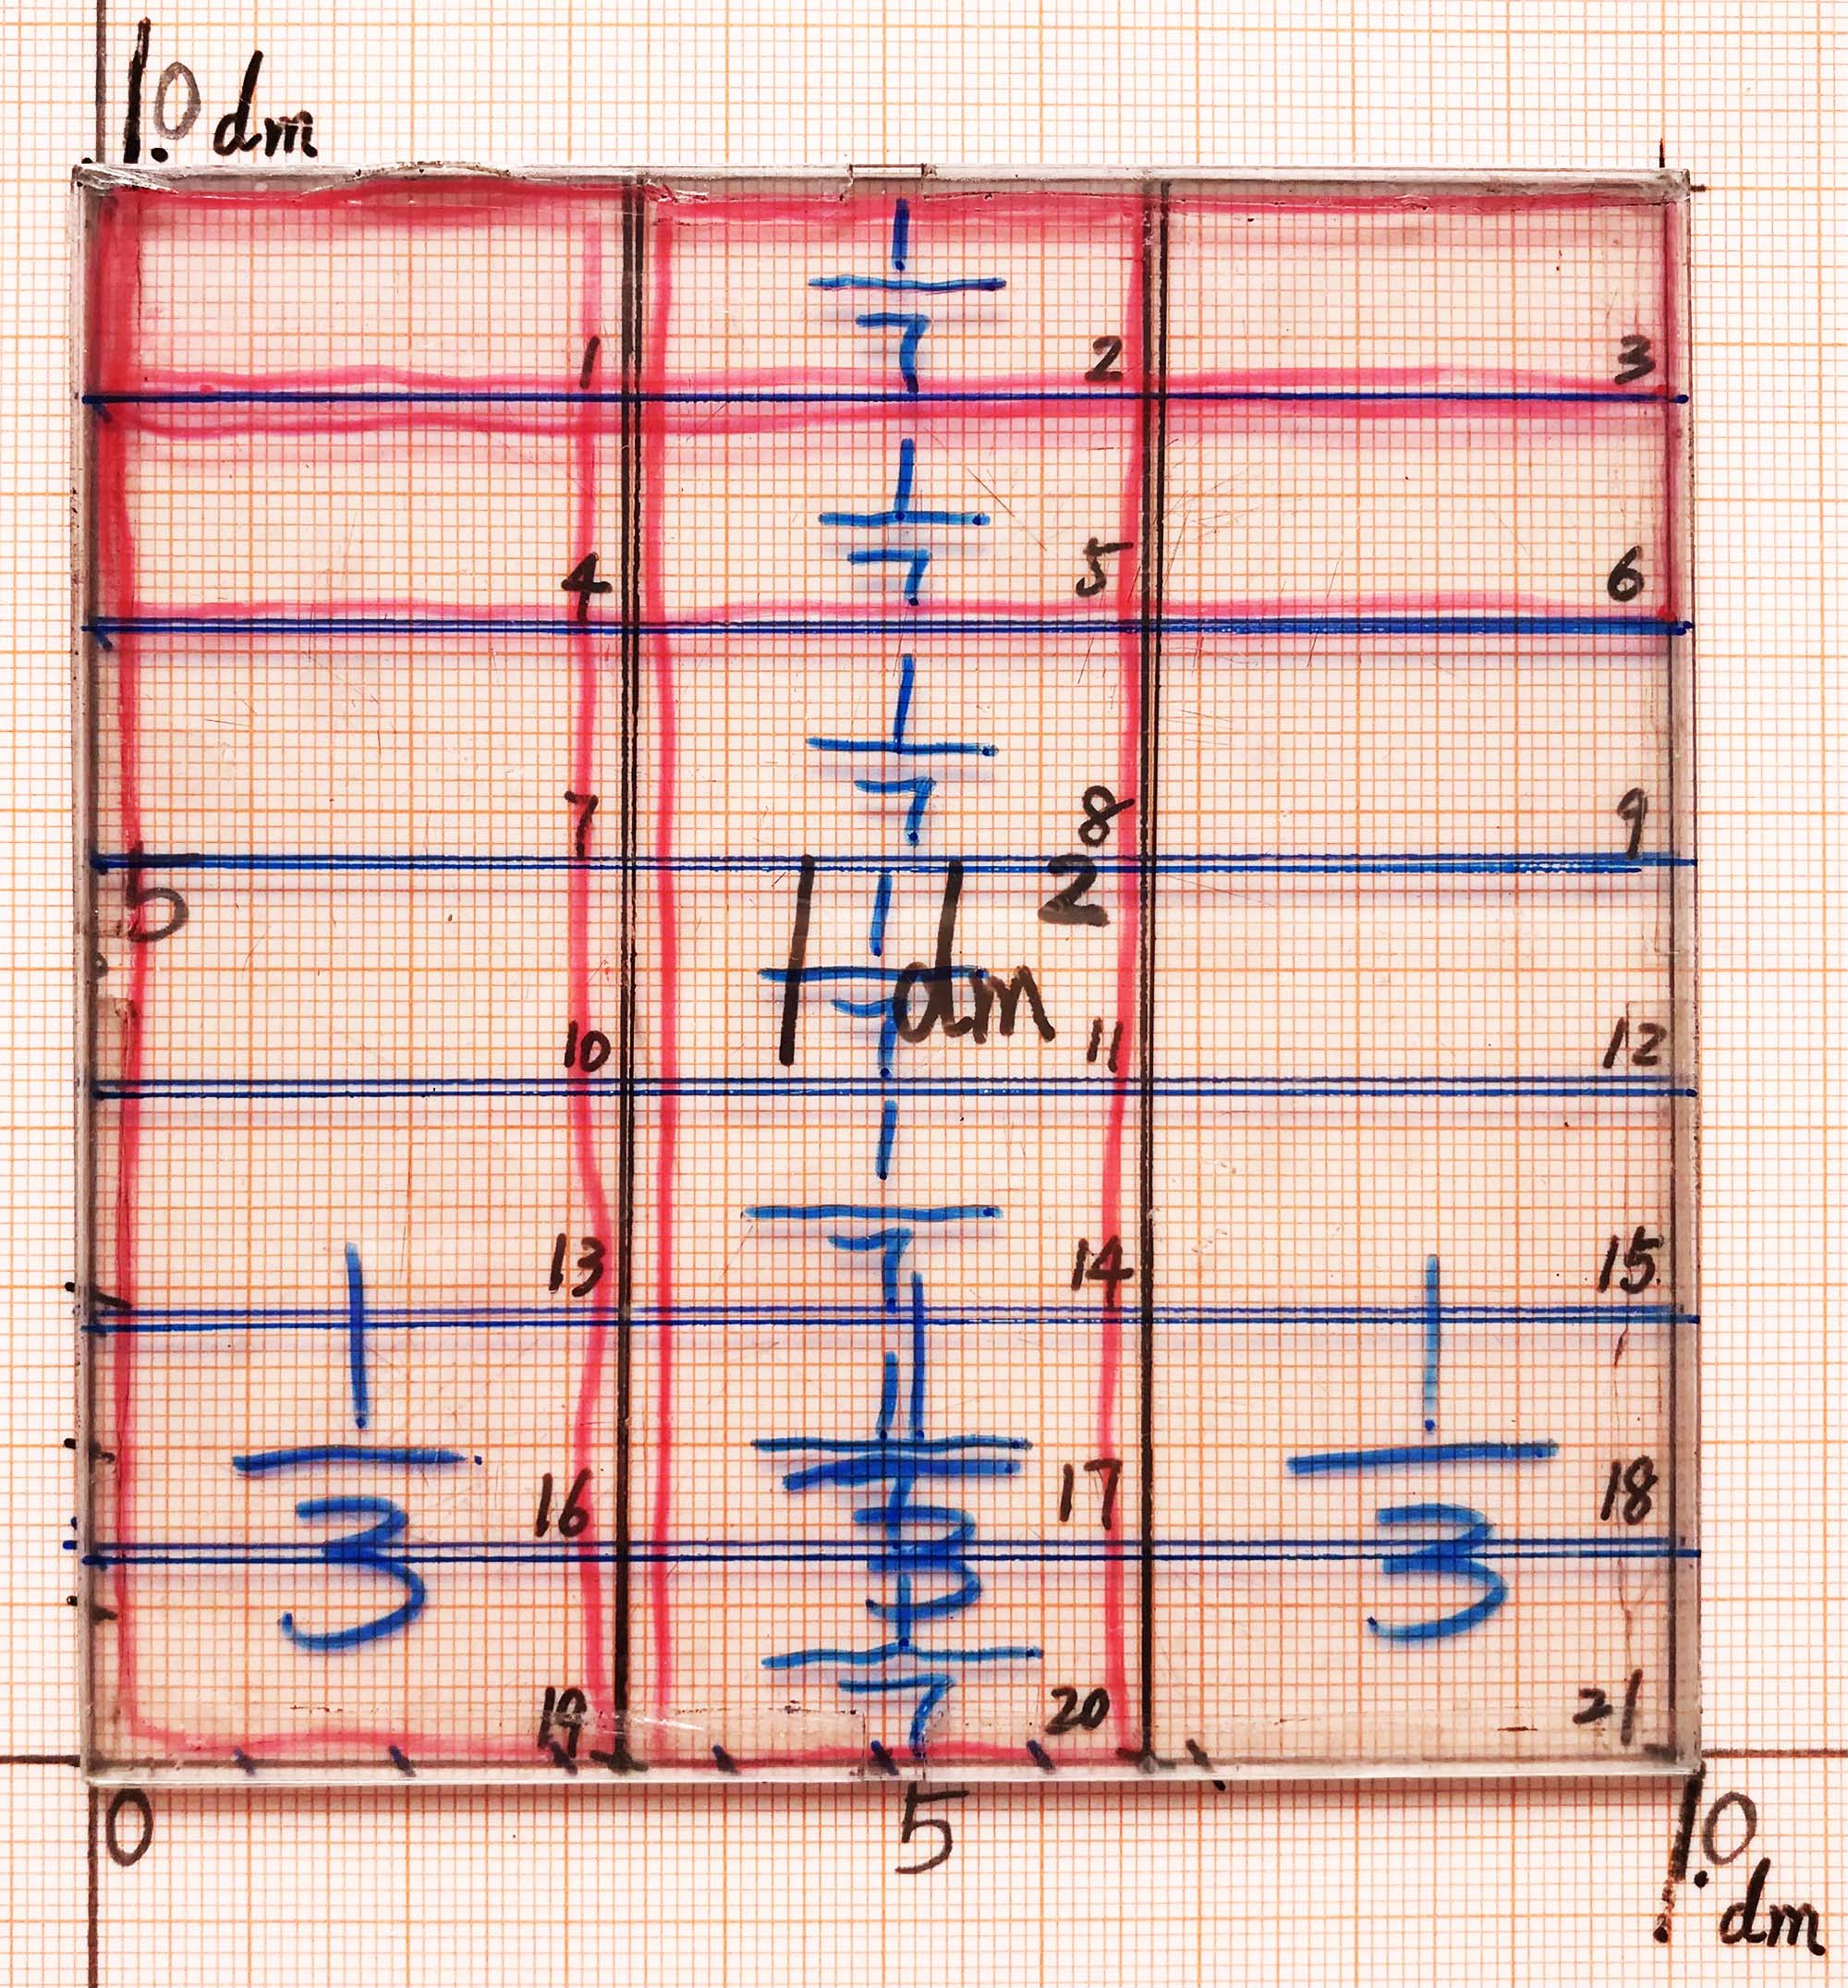 1.0 dm
1
7
1 2 3
1
7
4 5 6
1
7
7 8 9
5
1 dm 2
1
7
10 11 12
1
7
13 14 15
1 1 1
3 3 3
1
7
16 17 18
1
7
19 20 21
0 5 1.0 dm